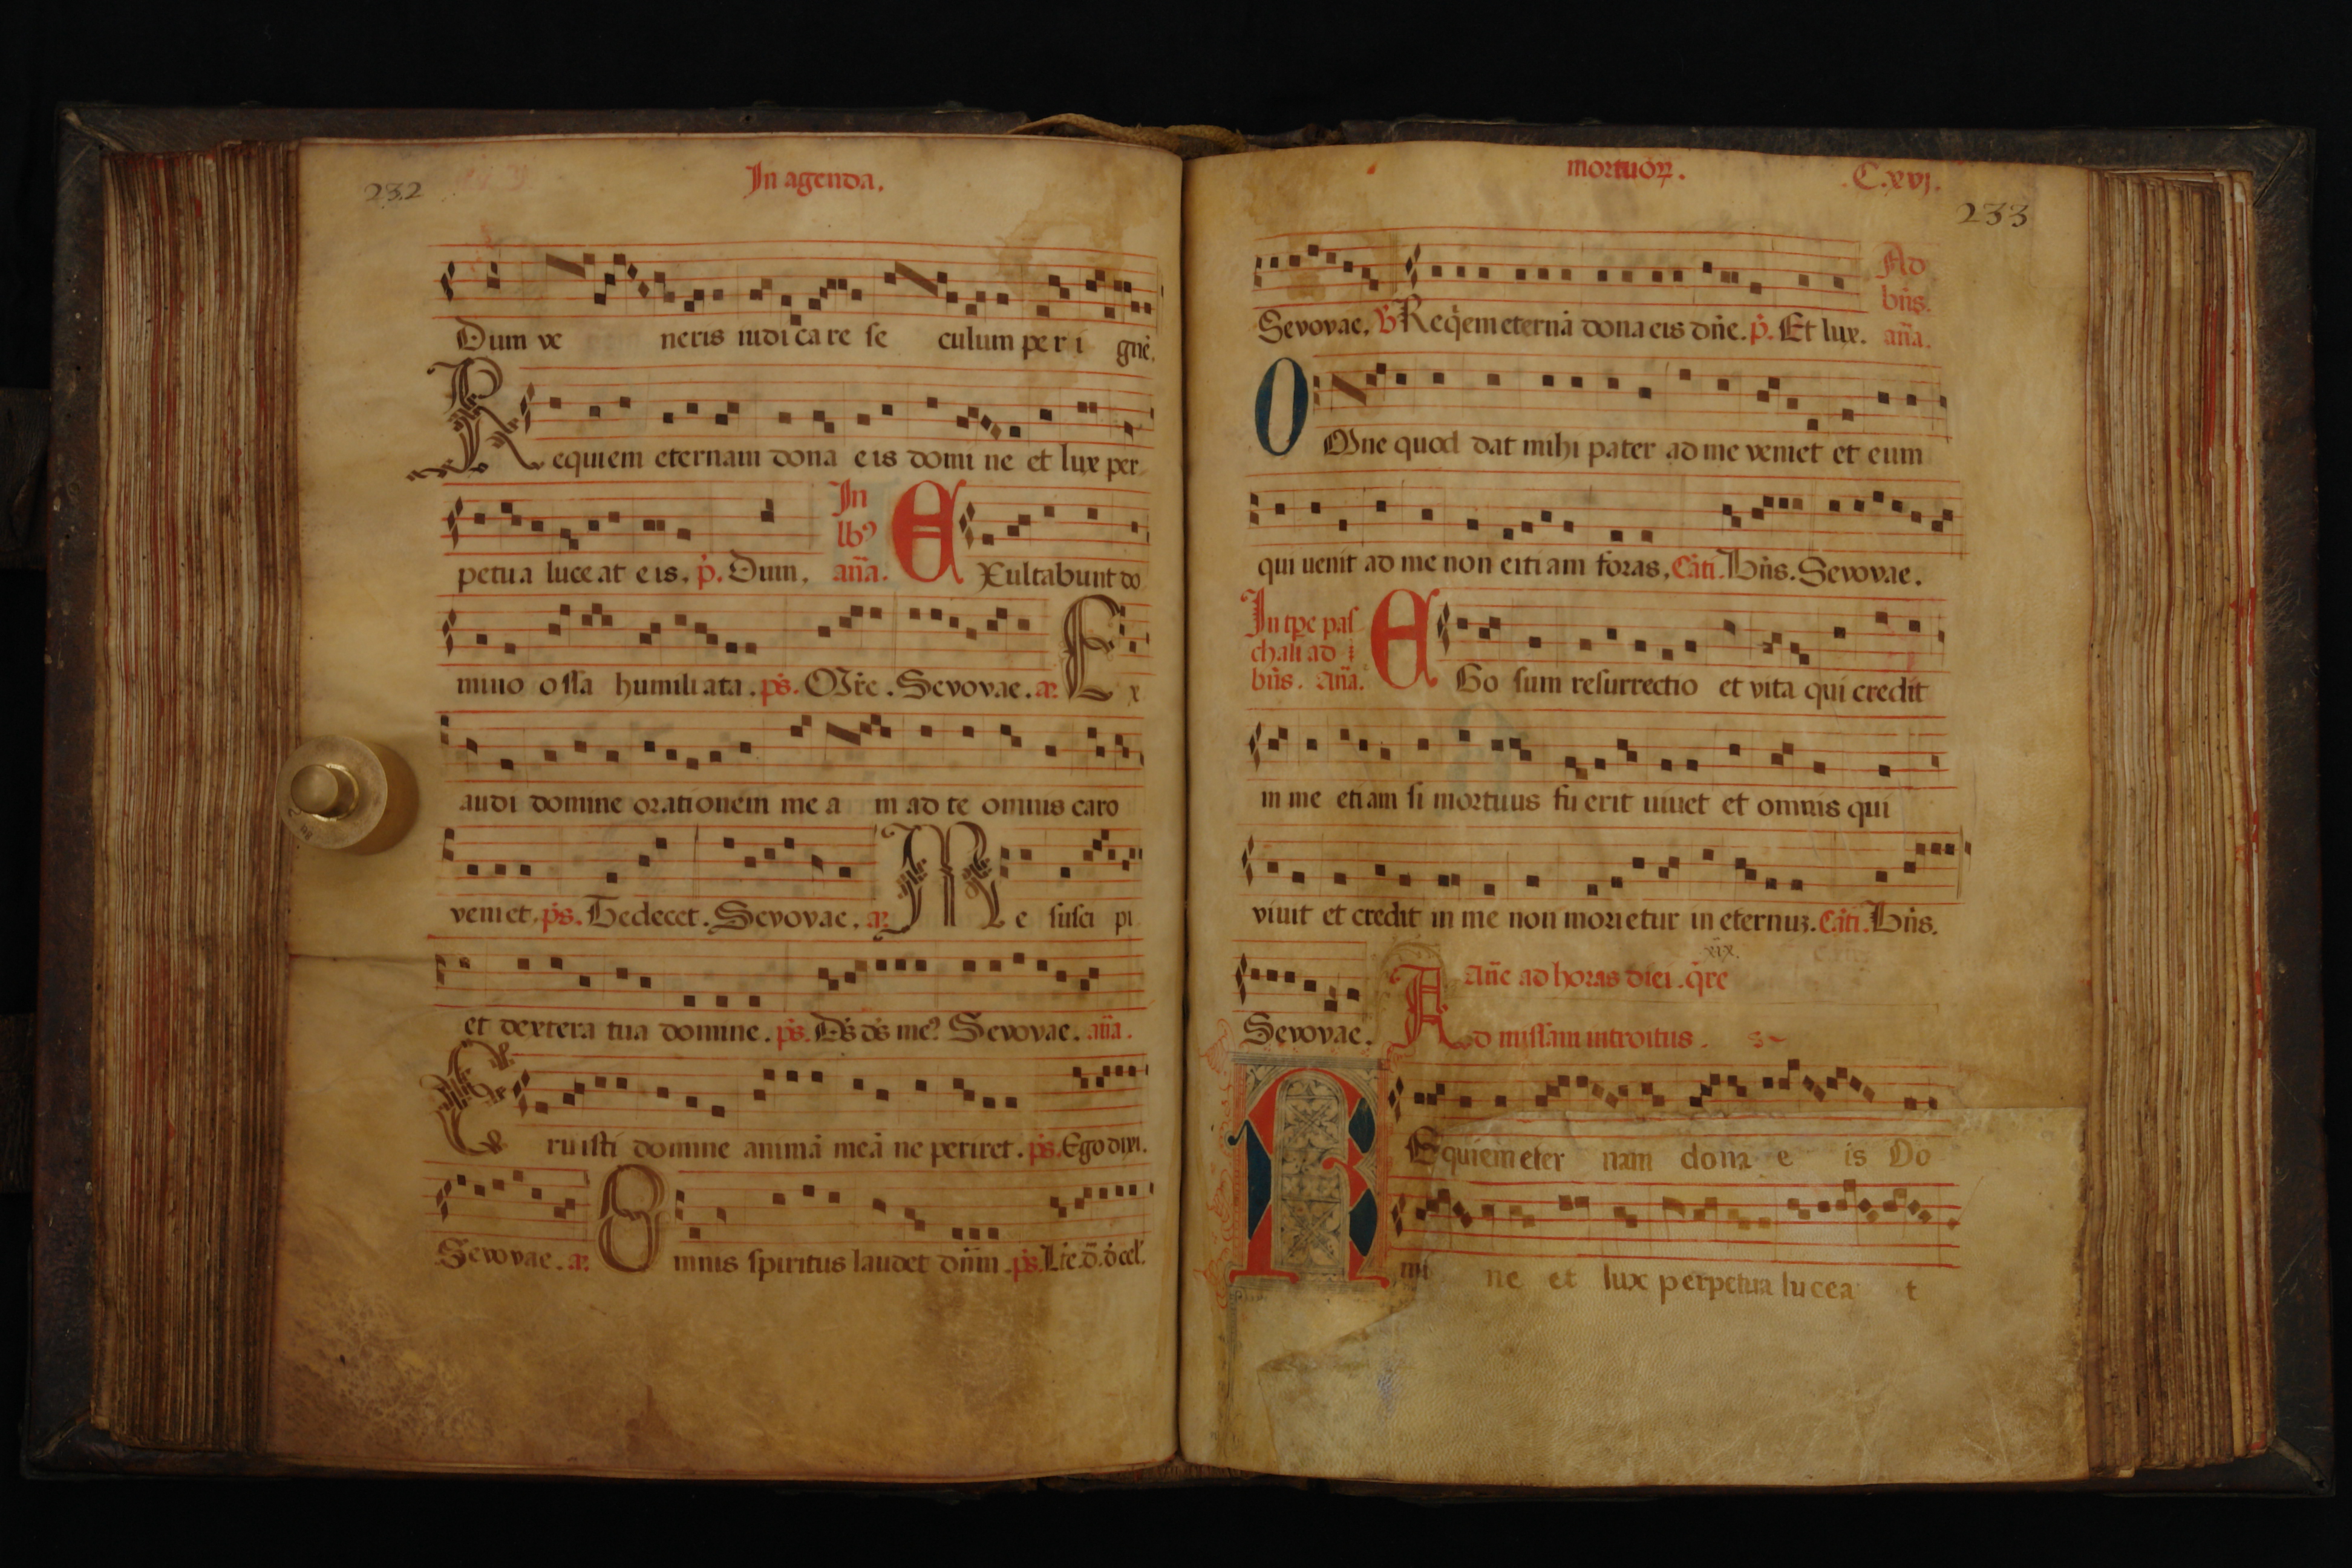 232
In agenda.
Dum ve neris iudicare se culum per i gnē.
Requiem eternam dona eis domine et lux per
petua luceat eis. p̄. Dum. In lb9 añа. EXultabunt do
mino ossa humiliata. ps. Mr̄e. Sevovae. a. Ex
audi domine orationem mea m ad te omnis caro
veniet. ps. Te decet. Sevovae. a. Me susci pi
et dextera tua domine. ps. Ds ds me9 Sevovae. aña.
Eruisti domine animā meā ne periret. ps. Ego dixi.
Sevovae. a. Omnis spiritus laudet dñm. ps. Lt̄e. d̄. d̄ cel'.
mortuoꝝ. C.xvj.
233
Sevovae. ℣ Req̄em eternā dona eis dñe. p̄. Et lux. Ad bñs. aña.
OMne quod dat mihi pater ad me veniet et eum
qui uenit ad me non eitiam foras. Cāti. Bñs. Sevovae.
In tꝑe pas
chali ad
bñs. aña. EGo sum resurrectio et vita qui credit
in me etiam si mortuus fuerit uiuet et omnis qui
viuit et credit in me non morietur in eternuꝫ. Cāti. Bñs.
xix.
Sevovae. Añe ad horas diei. q̄re
Ad missam introitus.
REquiem eter nam dona e is Do
mi ne et lux perpetua lucea t